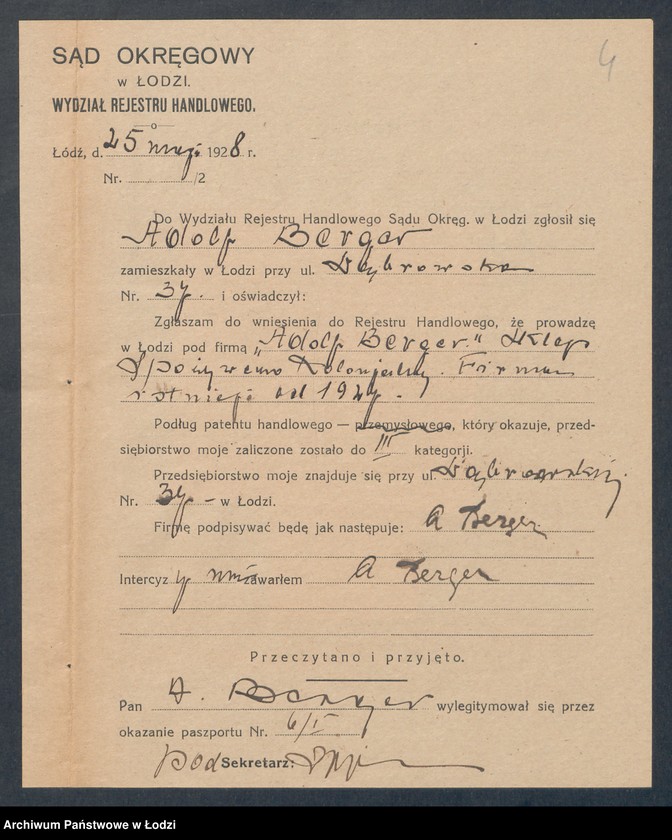 4
SĄD OKRĘGOWY
w ŁODZI.
WYDZIAŁ REJESTRU HANDLOWEGO.
o
Łódź, d. 25 maja 1928 r.
Nr. /2
Do Wydziału Rejestru Handlowego Sądu Okręg. w Łodzi zgłosił się
Adolf Berger
zamieszkały w Łodzi przy ul. Dąbrowska
Nr. 37. i oświadczył:
Zgłaszam do wniesienia do Rejestru Handlowego, że prowadzę
w Łodzi pod firmą „Adolf Berger" Sklep
Spożywczo Kolonjalny. Firma
istnieje od 1927.
Podług patentu handlowego — przemysłowego, który okazuje, przed-
siębiorstwo moje zaliczone zostało do III kategorji.
Przedsiębiorstwo moje znajduje się przy ul. Dąbrowskiej
Nr. 37 - w Łodzi.
Firmę podpisywać będę jak następuje: A Berger
Intercyzy nie zawarłem A Berger
Przeczytano i przyjęto.
Pan A. Berger wylegitymował się przez
okazanie paszportu Nr. 6/I
Pod Sekretarz:
Archiwum Państwowe w Łodzi